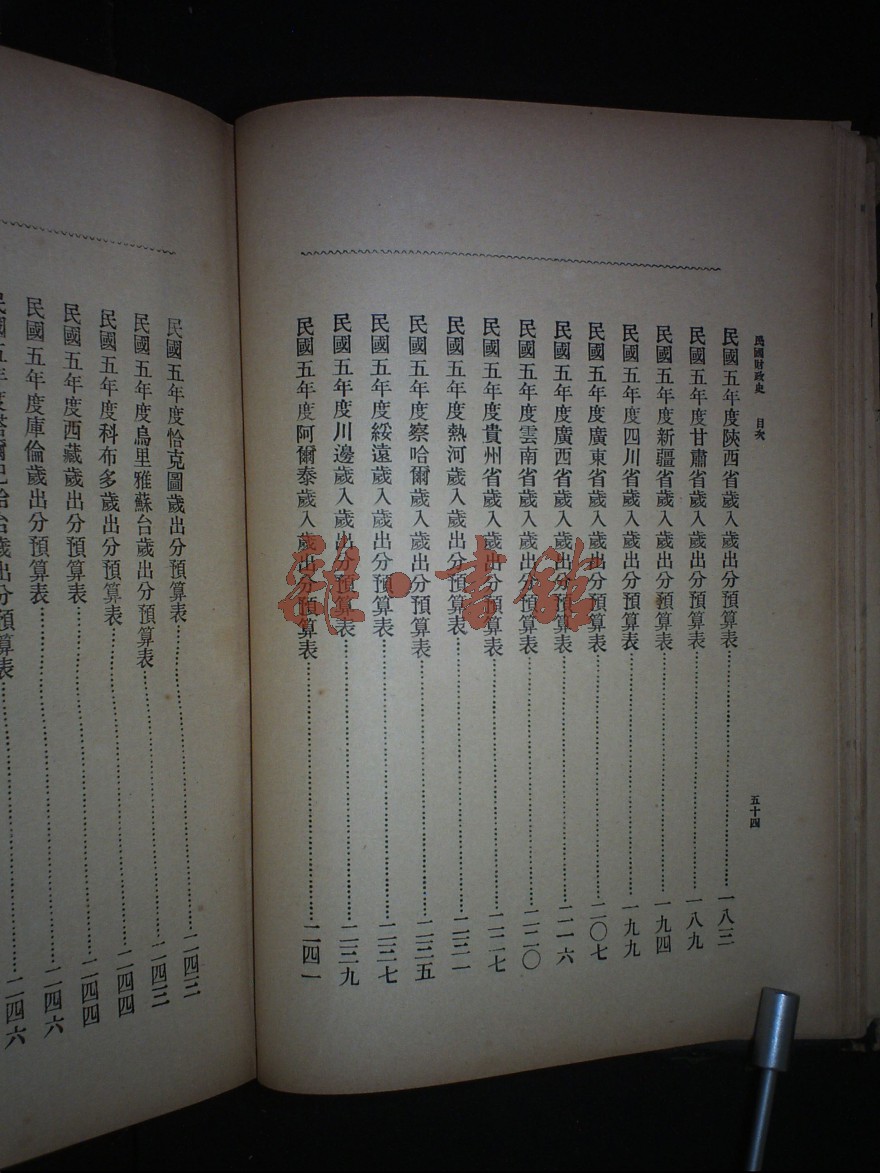 民國財政史 目次
五十四
民國五年度陝西省歲入歲出分預算表 一八三
民國五年度甘肅省歲入歲出分預算表 一八九
民國五年度新疆省歲入歲出分預算表 一九四
民國五年度四川省歲入歲出分預算表 一九九
民國五年度廣東省歲入歲出分預算表 二〇七
民國五年度廣西省歲入歲出分預算表 二一六
民國五年度雲南省歲入歲出分預算表 二二〇
民國五年度貴州省歲入歲出分預算表 二二七
民國五年度熱河歲入歲出分預算表 二三一
民國五年度察哈爾歲入歲出分預算表 二三五
民國五年度綏遠歲入歲出分預算表 二三七
民國五年度川邊歲入歲出分預算表 二三九
民國五年度阿爾泰歲入歲出分預算表 二四一
民國五年度恰克圖歲出分預算表 二四三
民國五年度烏里雅蘇台歲出分預算表 二四三
民國五年度科布多歲出分預算表 二四四
民國五年度西藏歲出分預算表 二四四
民國五年度庫倫歲出分預算表 二四六
民國五年度塔爾巴哈台歲出分預算表 二四六
雜·書館